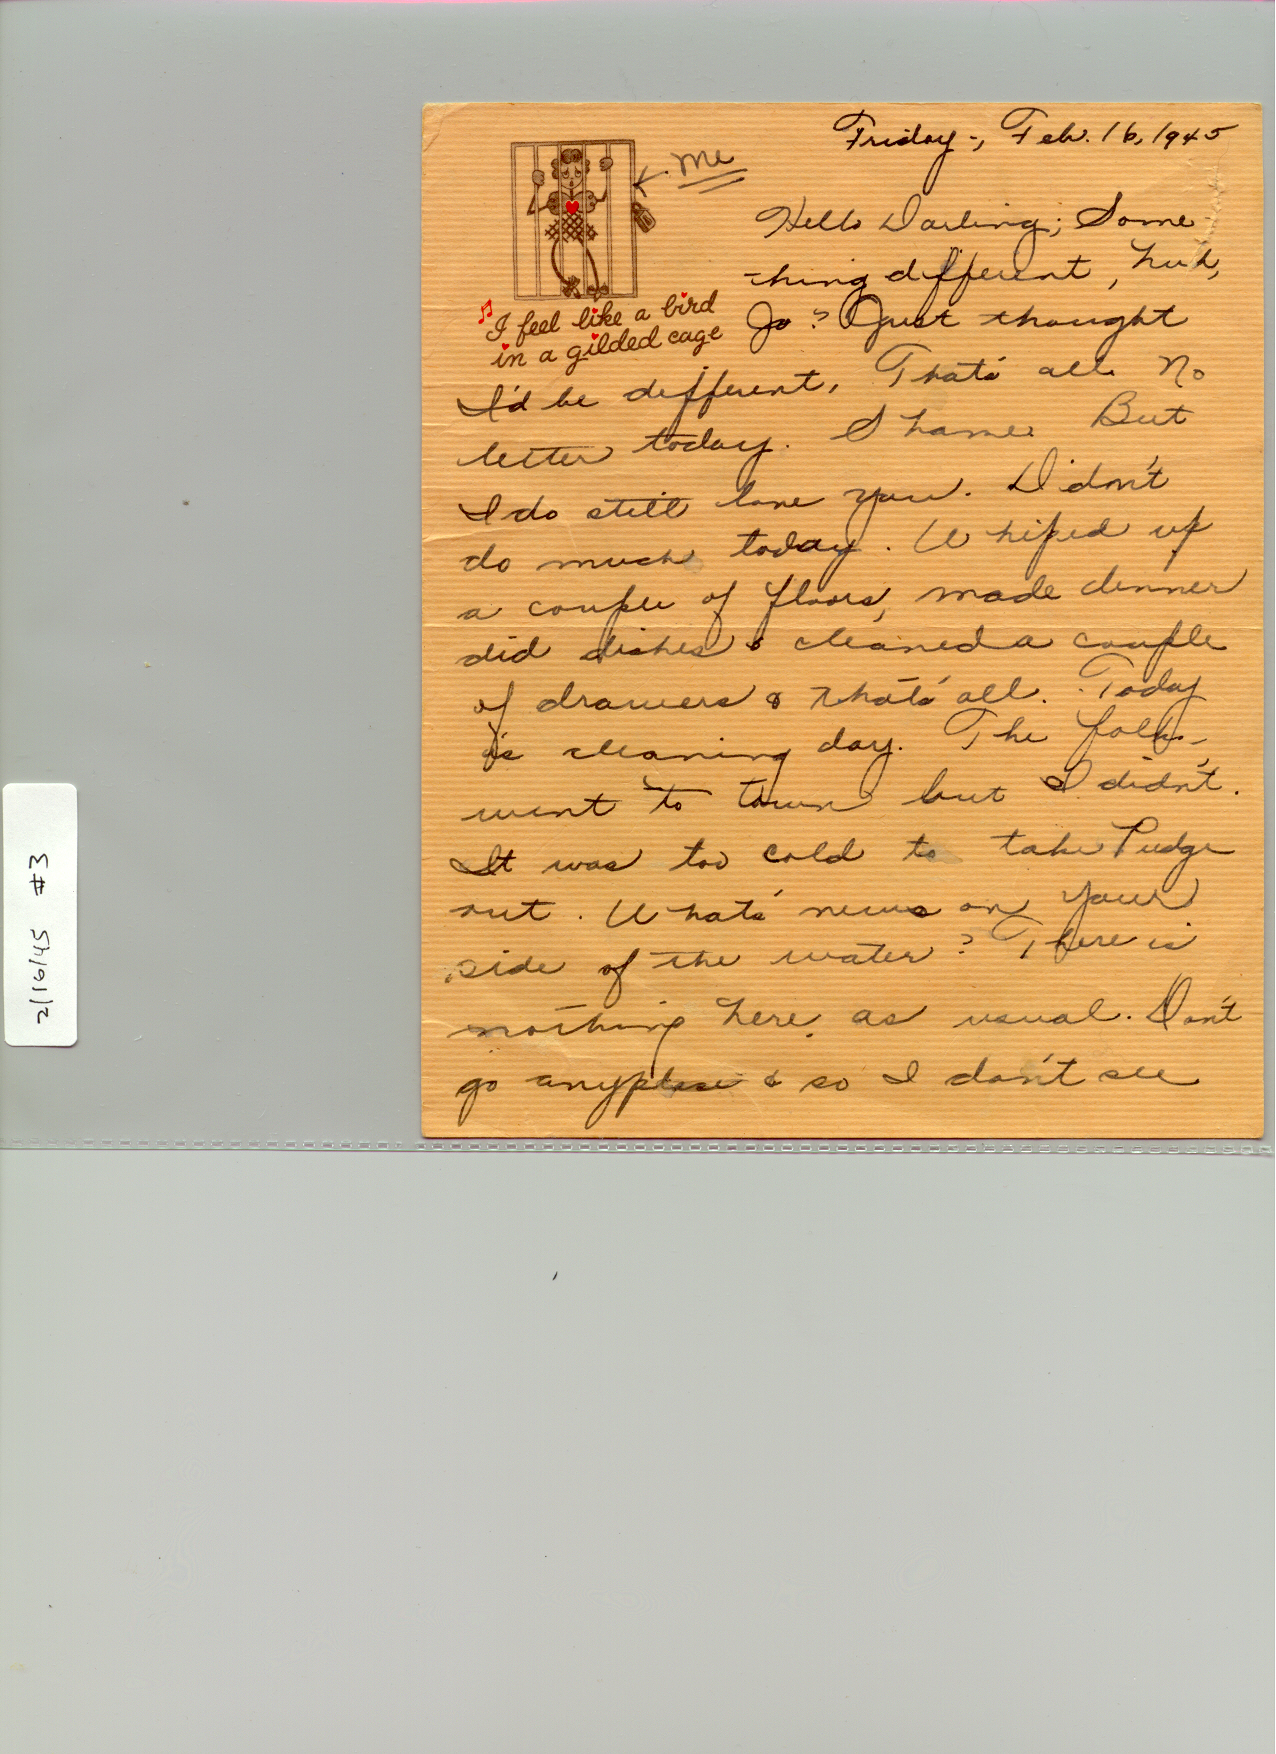 Friday-, Feb. 16, 1945
Me
Hello Darling; Some-
thing different, huh,
♫ I feel like a bird
in a gilded cage
Jo? Just thought
I'd be different, That's all. No
letter today. Shame. But
I do still love you. Didn't
do much today. Whiped up
a couple of floors, made dinner
did dishes & cleaned a couple
of drawers & that's all. Today
is cleaning day. The folks
went to town but I didn't.
It was too cold to take Pudge
out. What's news on your
side of the water? There is
nothing here as usual. Don't
go anyplace & so I don't see
2/16/45 #3